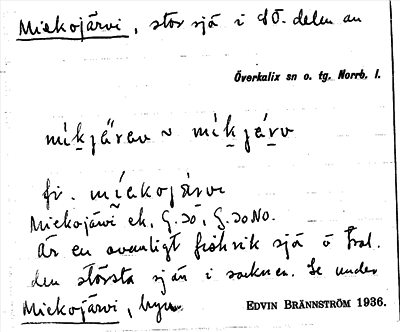 Miekojärvi, stor sjö i SO. delen av
Överkalix sn o. tg. Norrb. l.
mikjärav ~ mikjärv
fi. miekojärvi
Miekojärvi ek. G. SO, G. SO NO.
Är en ovanligt fiskrik sjö o
den största sjön i socknen. Se under
Miekojärvi, byn.
EDVIN BRÄNNSTRÖM 1936.